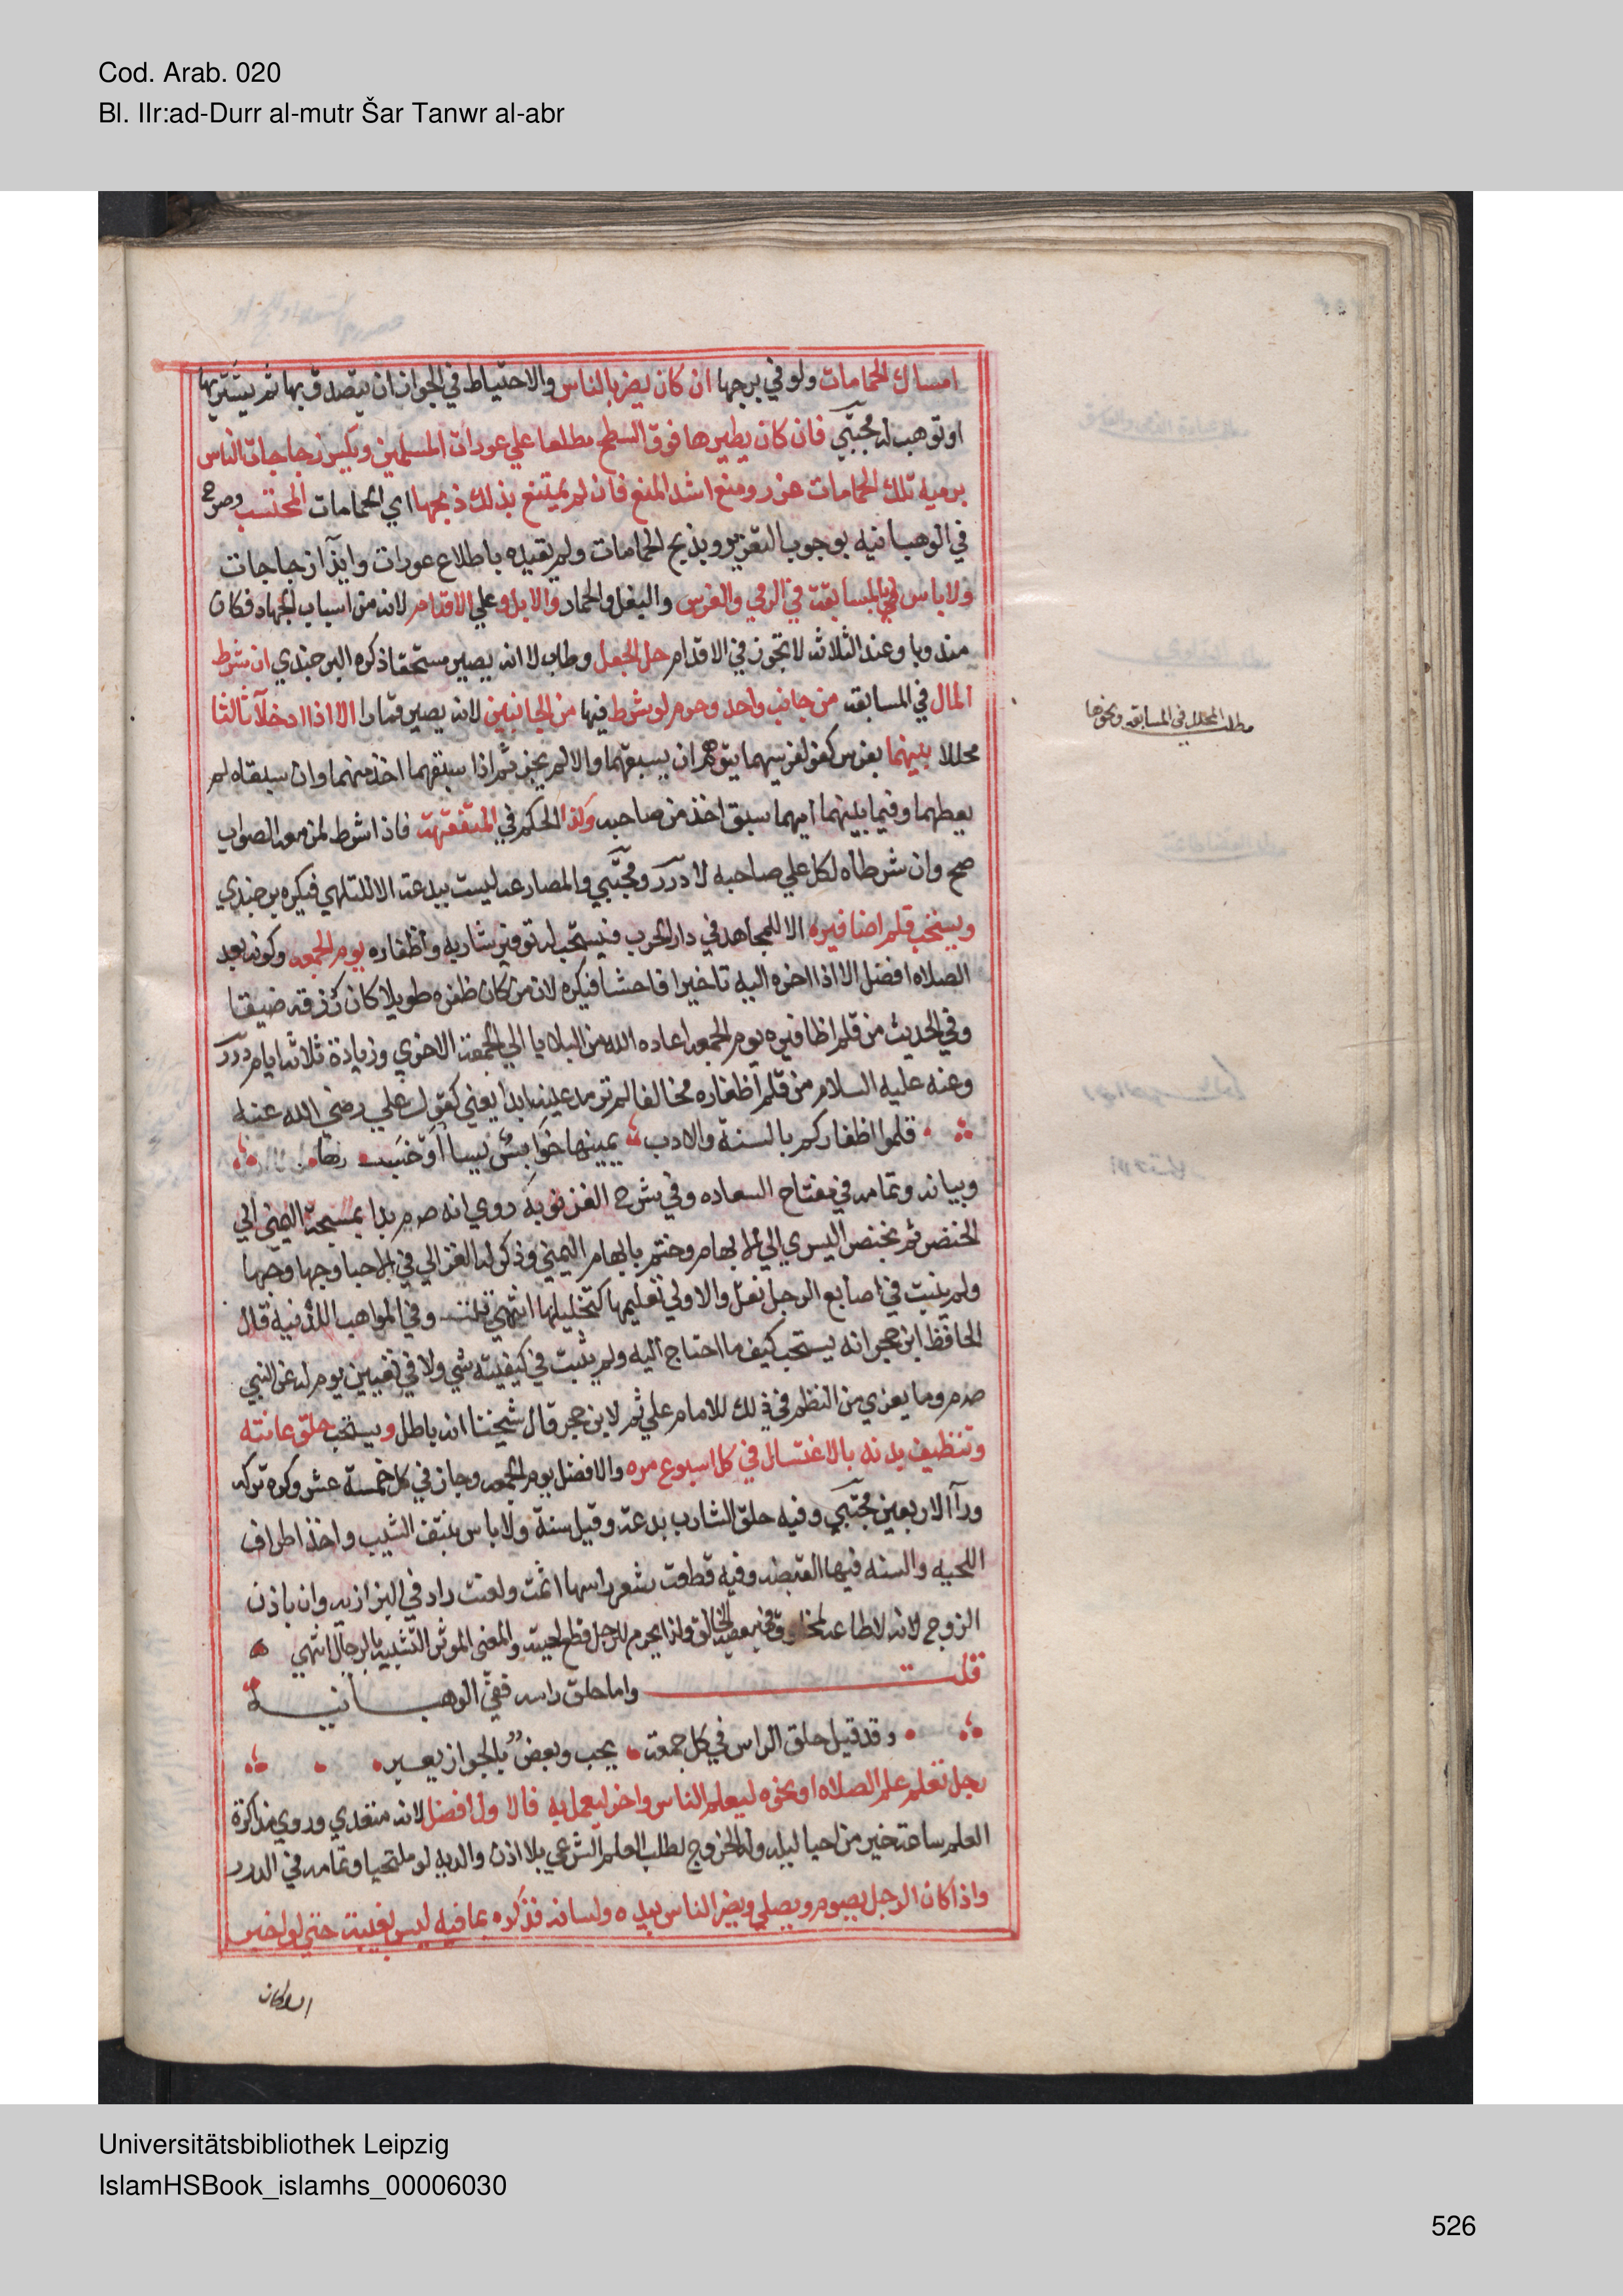 Cod. Arab. 020
Bl. IIr:ad-Durr al-mutr Šar Tanwr al-abr
امساك الحمامات ولو في برجها ان كان يضر بالناس والاحتياط في الجواز ان يتصدق بها ثم يشتريها
او توهب له مجتبي فان كان يطيرها فوق السطح مطلعا علي عورات المسلمين ويكسر زجاجات الناس
برميه تلك الحمامات عزر ومنع اشد المنع فان لم يمتنع بذلك ذبحها اي الحمامات المحتسب وصرح
في الوهبانيه بوجوب التعزير وبذبح الحمامات ولم يقيده باطلاع عورات وايذآ زجاجات
ولا باس بالمسابقة في الرمي والفرس والبغل والحمار والابل وعلي الاقدام لانه من اسباب الجهاد فكان
مندوبا وعند الثلاثه لا تجوز في الاقدام حل الجعل وطاب لا انه يصير مستحقا ذكره البرجندي ان شرط
المال في المسابقه من جانب واحد وحرم لو شرط فيها من الجانبين لانه يصير قمارا الا اذا ادخلا ثالثا
مطلب المحلل في المسابقه ونحوها
محللا بينهما بفرس كفو لفرسيهما يتوهم ان يسبقهما والا لم يجز ثم اذا سبقهما اخذ منهما وان سبقاه لم
يعطهما وفيما بينهما ايهما سبق اخذ من صاحبه وكذا الحكم في المتفقهة فاذا شرط لمن معه الصواب
صح وان شرطاه لكل علي صاحبه لا درر ومجتبي والمصارعه ليست ببدعة الا للتلهي فيكره برجندي
ويستحب قلم اضافيره الا للمجاهد في دار الحرب فيستحب له توفير شاربه واظفاره يوم الجمعه وكونه بعد
الصلاه افضل الا اذا اخره اليه تاخيرا فاحشا فيكره لان من كان ظفره طويلا كان رزقه ضيقا
وفي الحديث من قلم اظافيره يوم الجمعه اعاده الله من البلايا الي الجمعة الاخري وزيادة ثلاثه ايام درر
وعنه عليه السلام من قلم اظفاره مخالفا لم ترمد عينه ابدا يعني كقول علي رضي الله عنه
قلموا اظفاركم بالسنة والادب يمينها خوابس يسا اوخسب
وبيانه وتمامه في مفتاح السعاده وفي شرح الغزنويه روي انه صم بدا بمسبحة اليمني الي
الخنصر ثم بخنصر اليسري الي الابهام وختم بابهام اليمني وذكر له الغزالي في الاحيا وجها وجيها
ولم يثبت في اصابع الرجل نقل والاولي تقليمها كتخليلها انتهي قلت وفي المواهب اللدنيه قال
الحافظ ابن حجر انه يستحب كيف ما احتاج اليه ولم يثبت في كيفيته شي ولا في تعيين يوم له عن النبي
صم وما يعزي من النظم في ذلك للامام علي ثم لابن حجر قال شيخنا انه باطل ويستحب حلق عانته
وتنظيف بدنه بالاغتسال في كل اسبوع مره والافضل يوم الجمعه وجاز في كل خمسة عشر وكره تركه
ورآ الاربعين مجتبي وفيه حلق الشارب بدعة وقيل سنة ولا باس بنتف الشيب واخذ اطراف
اللحيه والسنه فيها القبضه وفيه قطعت شعر راسها اثمت ولعنت زاد في البزازيه وان باذن
الزوج لانه لا طاعه لمخلوق في معصية الخالق ولذا يحرم للرجل قطع لحيته والمعني الموثر التشبه بالرجال انتهي
قلت واما حلق راسه ففي الوهبانية
وقد قيل حلق الراس في كل جمعة يحب وبعض بالجواز يعبر
رجل تعلم علم الصلاه او نحوه ليعلم الناس واخر ليعمل به فالاول افضل لانه متعدي وروي مذاكرة
العلم ساعة خير من احيا ليله وله الخروج لطلب العلم الشرعي بلا اذن والديه لو ملتحيا وتمامه في الدرر
واذا كان الرجل يصوم ويصلي ويضر الناس بيده ولسانه فذكره بما فيه ليس بغيبة حتي لو اخبر
السلطان
Universitätsbibliothek Leipzig
IslamHSBook_islamhs_00006030
526